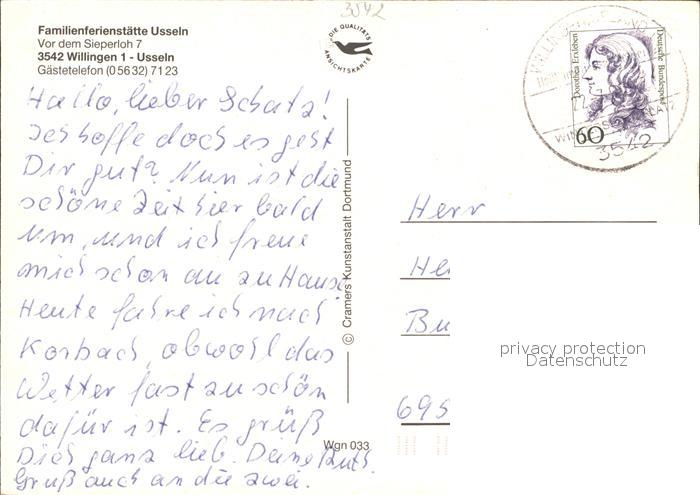 3542
Familienferienstätte Usseln
Vor dem Sieperloh 7
3542 Willingen 1 - Usseln
Gästetelefon (0 56 32) 71 23
DIE QUALITÄTS
ANSICHTSKARTE
Dorothea Erxleben
Deutsche Bundespost
60
3542
Hallo, lieber Schatz!
Ich hoffe doch es geht
Dir gut? Nun ist die
schöne Zeit hier bald
um, und ich freue
mich schon auf zu Hause.
Heute fahre ich nach
Korbach, obwohl das
Wetter fast zu schön
dafür ist. Es grüßt
Dich ganz lieb. Deine Ruth.
Gruß auch an die zwei.
© Cramers Kunstanstalt Dortmund
Wgn 033
Herr
He
Bu
695
privacy protection
Datenschutz